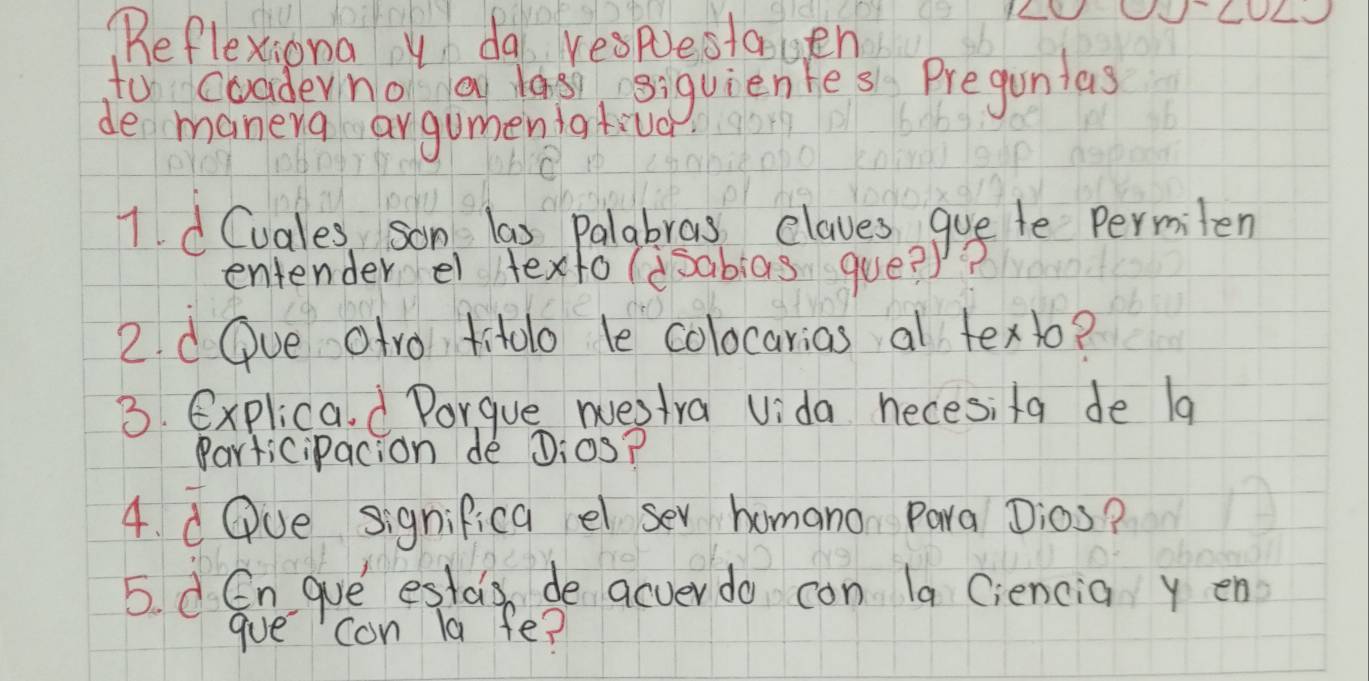 20-03-2023
Reflexiona y da respuesta en
tu cuaderno a las siguientes Preguntas
de manera argumentativa.
1. ¿Cuales son las Palabras claves que te Permiten
entender el texto (¿Sabias que?)?
2. ¿Que otro titulo le colocarias al texto?
3. Explica. ¿Porque nuestra vida necesita de la
Participacion de Dios?
4. ¿Que significa el ser humano Para Dios?
5. ¿En qué estás de acuerdo con la Ciencia y en
que con la fe?